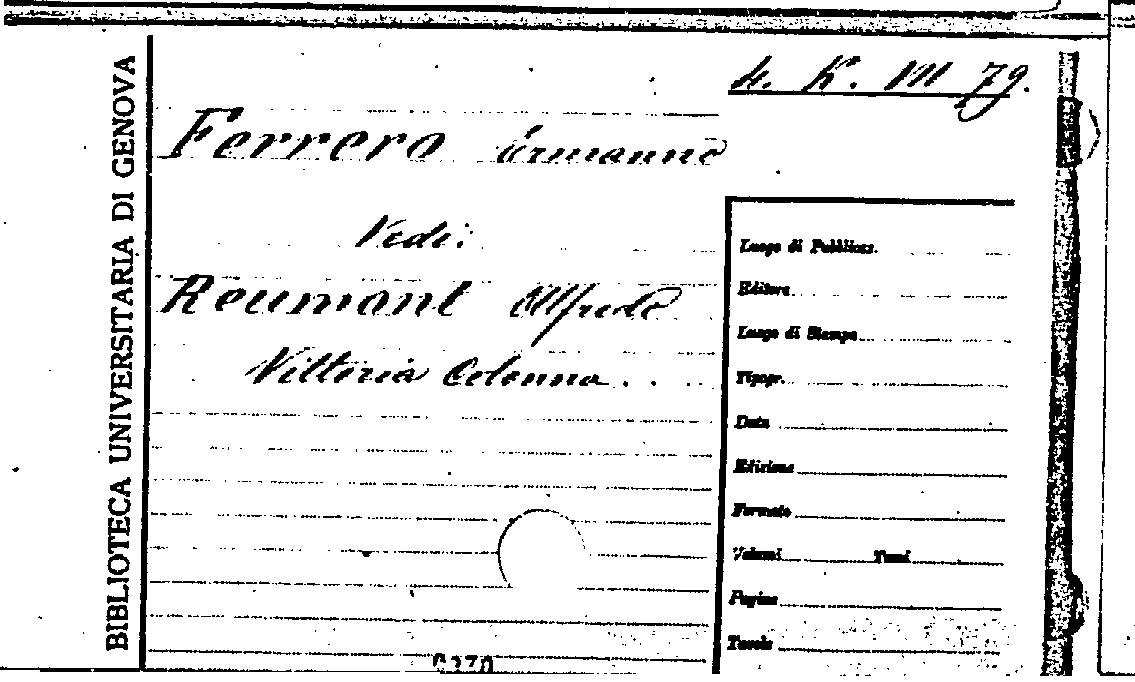 BIBLIOTECA UNIVERSITARIA DI GENOVA
4. K. VII 79.
Ferrero Ermanno
Vedi:
Reumont Alfredo
Vittoria Colonna
Luogo di Pubblicaz.
Editore
Luogo di Stampa
Tipogr.
Data
Edizione
Formato
Volumi Tomi
Pagine
Tavole